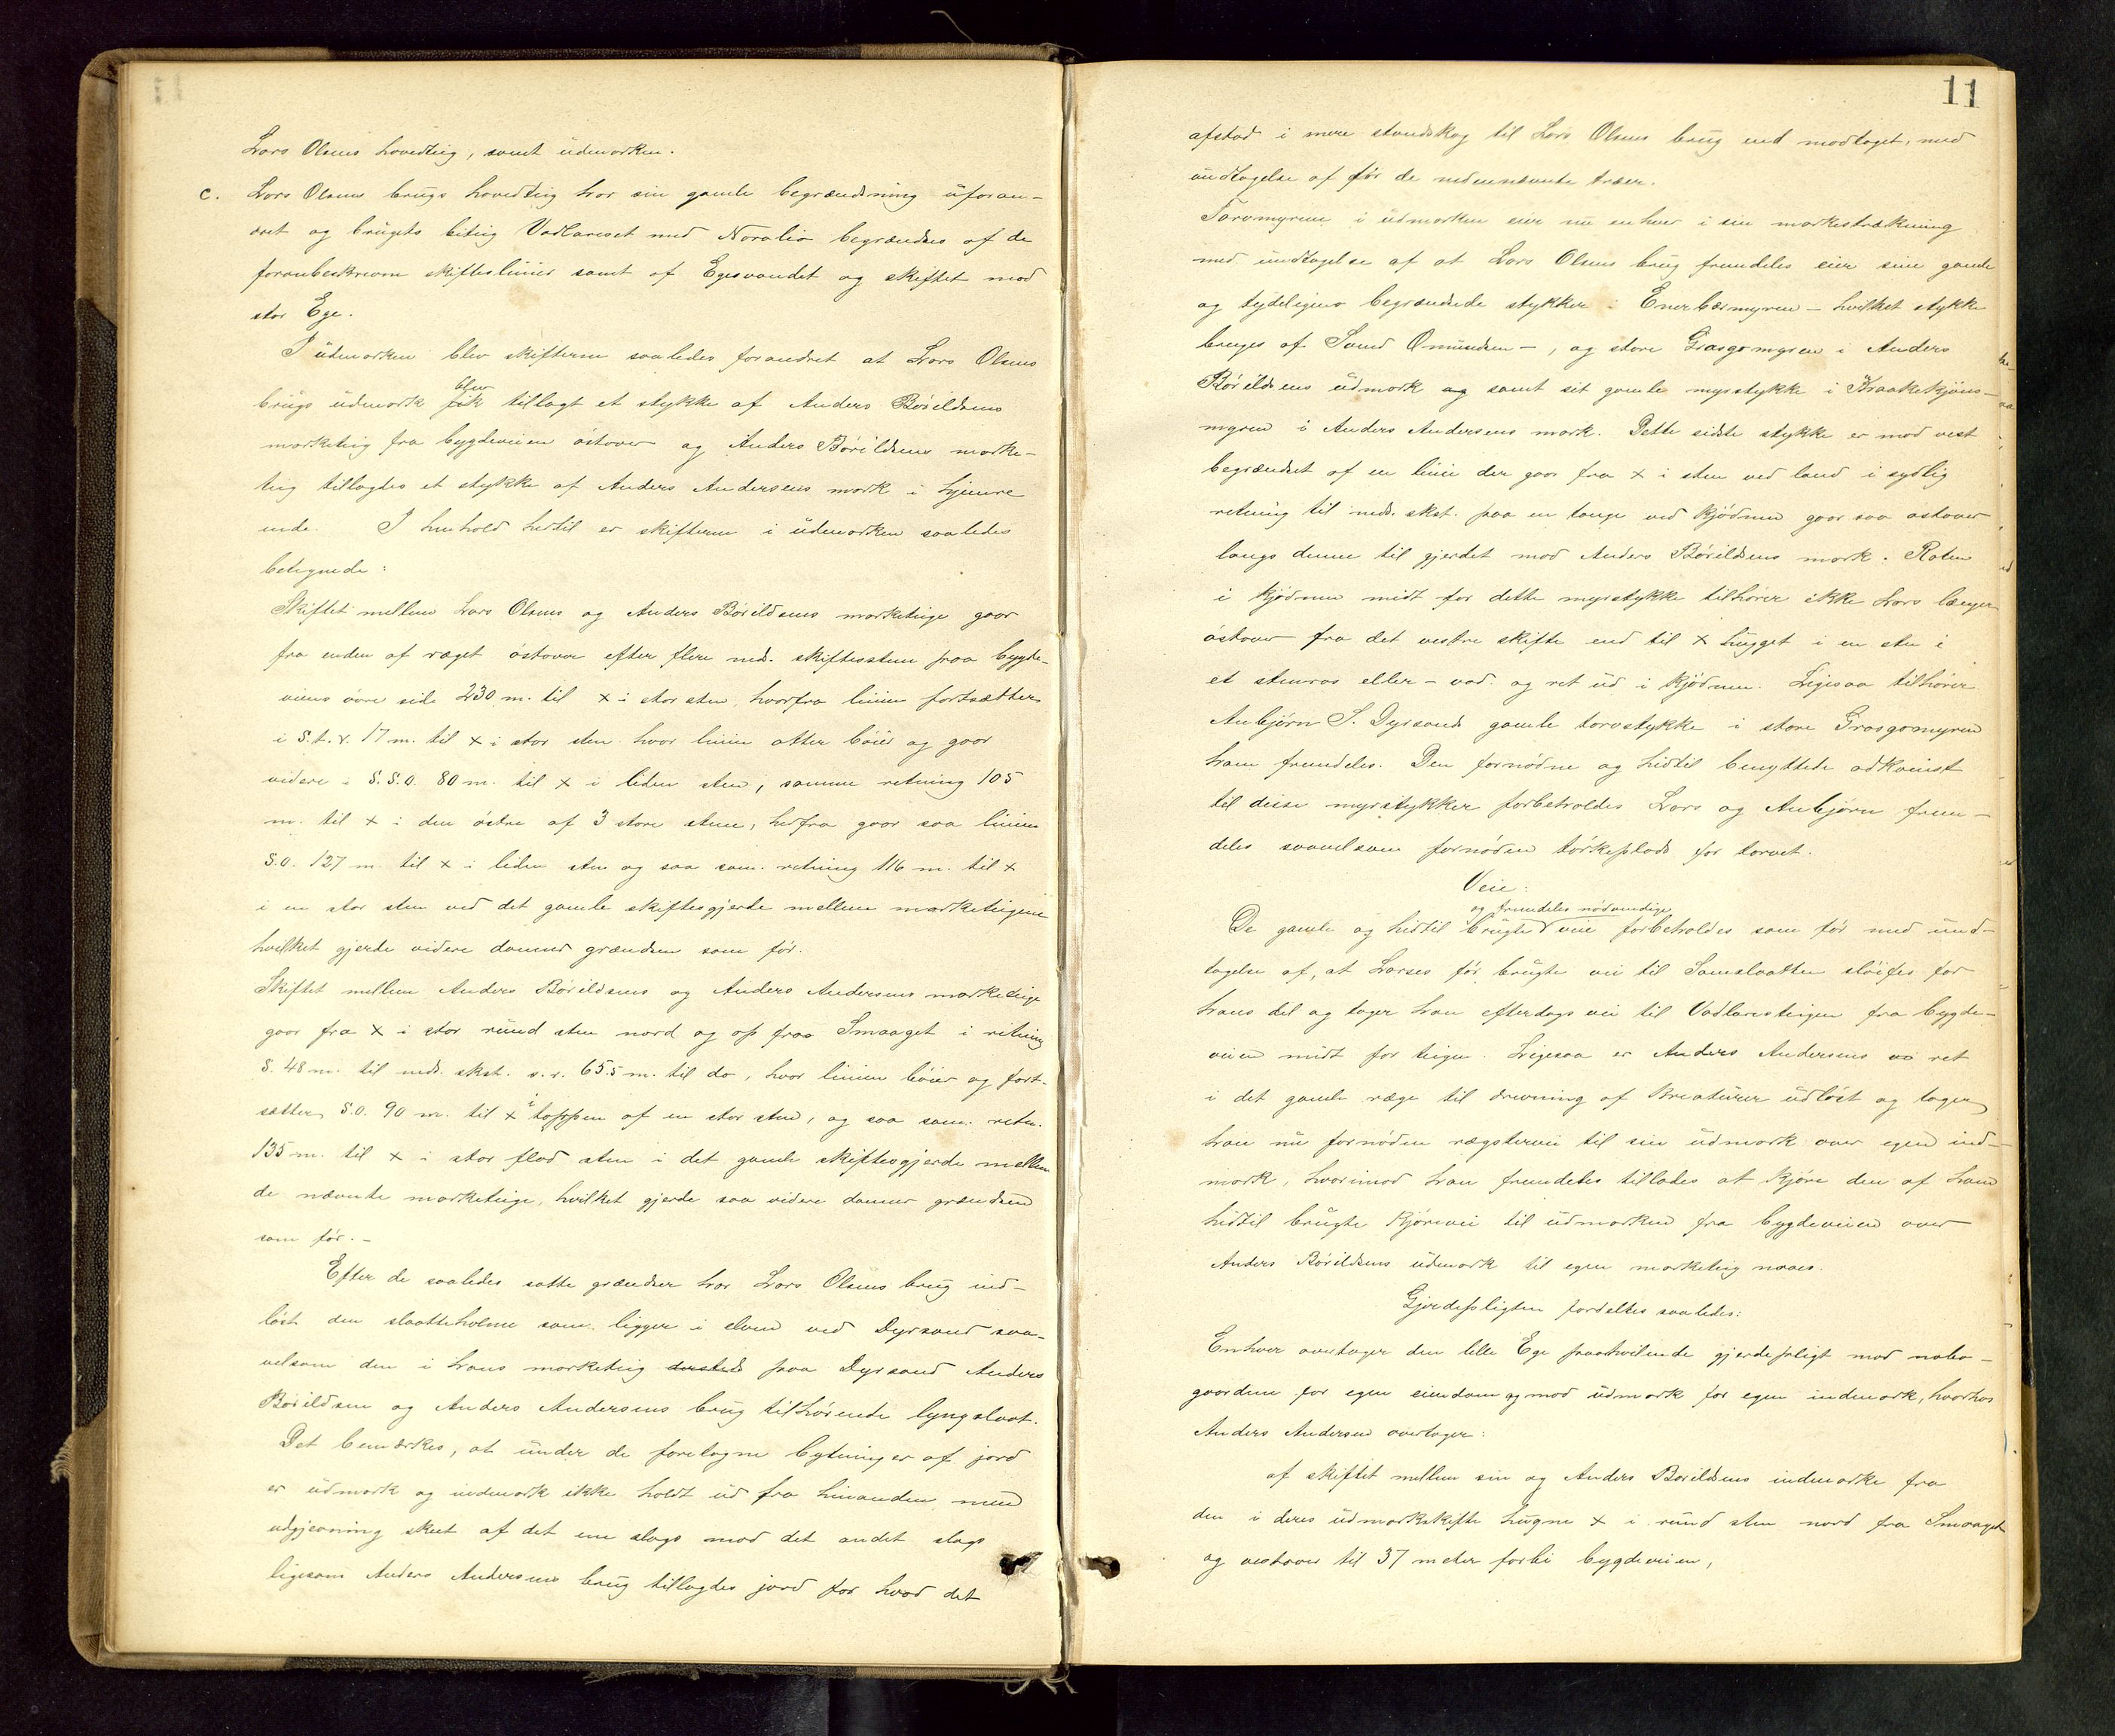 Lars Olsens hovedteig, samt udmarken.
c. Lars Olsens brugs hovedteig har sin gamle begrændsning uforan-
dret og brugets biteig Vadlareset med Noralia begrændses af de
foranbeskrevne skifteslinier samt af Egesvandet og skiftet mod
stor Ege.
I udmarken blev skifterne saaledes forandret at Lars Olsens
brugs udmark fik blev tillagt et stykke af Anders Børildsens
marketeig fra bygdeveien østover og Anders Børildsens marke-
teig tillagdes et stykke af Anders Andersens mark i hjemre
ende. I henhold hertil er skifterne i udmarken saaledes
betegnede:
Skiftet mellem Lars Olsens og Anders Børildsens marketeige gaar
fra enden af ræget østover efter flere neds. skiftesstene paa bygde-
veiens øvre side 230 m. til x i stor sten, hvorfra linien fortsætter
i S.t.v. 17 m. til x i stor sten hvor linien atter bøier og gaar
videre i S.S.O. 80 m. til x i liden sten, samme retning 105
m. til x i den østre af 3 store stene, herfra gaar saa linien
S.O. 127 m. til x i liden sten og saa sam. retning 116 m. til x
i en stor sten ved det gamle skiftesgjerde mellem marketeigene
hvilket gjerde videre danner grændsen som før.
Skiftet mellem Anders Børildsens og Anders Andersens marketeige
gaar fra x i stor rund sten nord og op fraa Smaaget i retning
S. 48 m. til neds. skst. s.r. 65.5 m. til do, hvor linien bøier og fort-
sætter S.O. 90 m. til x i toppen af en stor sten, og saa sam. retn.
135 m. til x i stor flad sten i det gamle skiftesgjerde mellem
de nævnte marketeige, hvilket gjerde saa videre danner grændsen
som før. -
Efter de saaledes satte grændser har Lars Olsens brug ind-
løst den slaatteholme som ligger i elven ved Dyrsand saa-
velsom den i hans marketeig dersteds paa Dyrsand Anders
Børildsen og Anders Andersens brug tilhørende lyngslaat.
Det bemærkes, at under de foretagne bytninger af jord
er udmark og indmark ikke holdt ud fra hinanden, men
udgjevning skeet af det ene slags mod det andet slags
ligesom Anders Andersens brug tillagdes jord for hvad det
11
afstod i mere standskog til Lars Olsens brug end modtaget, med
undtagelse af før de nedennævnte træer.
Torvmyrene i udmarken eier nu enhver i sin markestrækning
med undtagelse af at Lars Olsens brug fremdeles eier sine gamle
og tydeligens begrændsede stykker i Enerbærmyren - hvilket stykke
bruges af Svend Omundsen -, og store Grasgomyren i Anders
Børildsens udmark og samt sit gamle myrstykke i Kraakekjøns-
myren i Anders Andersens mark. Dette sidste stykke er mod vest
begrændset af en linie der gaar fra x i sten ved land i sydlig
retning til neds. skst. paa en tange ved kjødnen gaar saa østover
langs denne til gjerdet mod Anders Børildsens mark. Roten
i kjødnen midt for dette myrstykke tilhører ikke Lars længer
østover fra det vestre skifte end til x hugget i en sten i
et stenras eller - vad. og ret ud i kjødnen. Ligesaa tilhører
Anbjørn S. Dyrsands gamle torvstykke i store Grasgomyren
ham fremdeles. Den fornødne og hidtil benyttede adkomst
til disse myrstykker forbeholdes Lars og Anbjørn frem-
deles saavelsom fornøden tørkeplads for torvet.
Veie:
og fremdeles nødvendige
De gamle og hidtil brugte veie forbeholdes som før med und-
tagelse af, at Larses før brugte vei til Samslaatten sløifes for
hans del og tager han efterdags vei til Vadlaresteigen fra bygde-
veien midt for teigen. Ligesaa er Anders Andersens ret
i det gamle ræge til drevning af Kreaturer udløst og tager
han nu fornøden rægstervei til sin udmark over egen ind-
mark, hvorimod han fremdeles tillades at kjøre den af ham
hidtil brugte kjørevei til udmarken fra bygdeveien over
Anders Børildsens udmark til egen marketeig naaes.
Gjerdepligten fordeltes saaledes:
Enhver overtager den lille Ege paahvilende gjerdepligt mod nabo-
gaardene for egen eiendom og mod udmark for egen indmark, hvorhos
Anders Andersen overtager:
af skiftet mellem sin og Anders Børildsens indmarke fra
den i deres udmarkskifte hugne x i rund sten nord fra Smaaget
og vestover til 37 meter forbi bygdeveien,